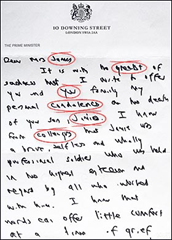 10 DOWNING STREET
LONDON SW1A 2AA
THE PRIME MINISTER
Dear Mrs James
It is with
sadness that I write to offer
you and you family my
personal condolences on the death
of you son, Jamie
I know
from colleagus that Jamie was
a brave, selfless and wholly
professional soldier who was held
in the highest esteem and
regard by all who worked
with him. I know that
words can offer little comfort
at a time of grief